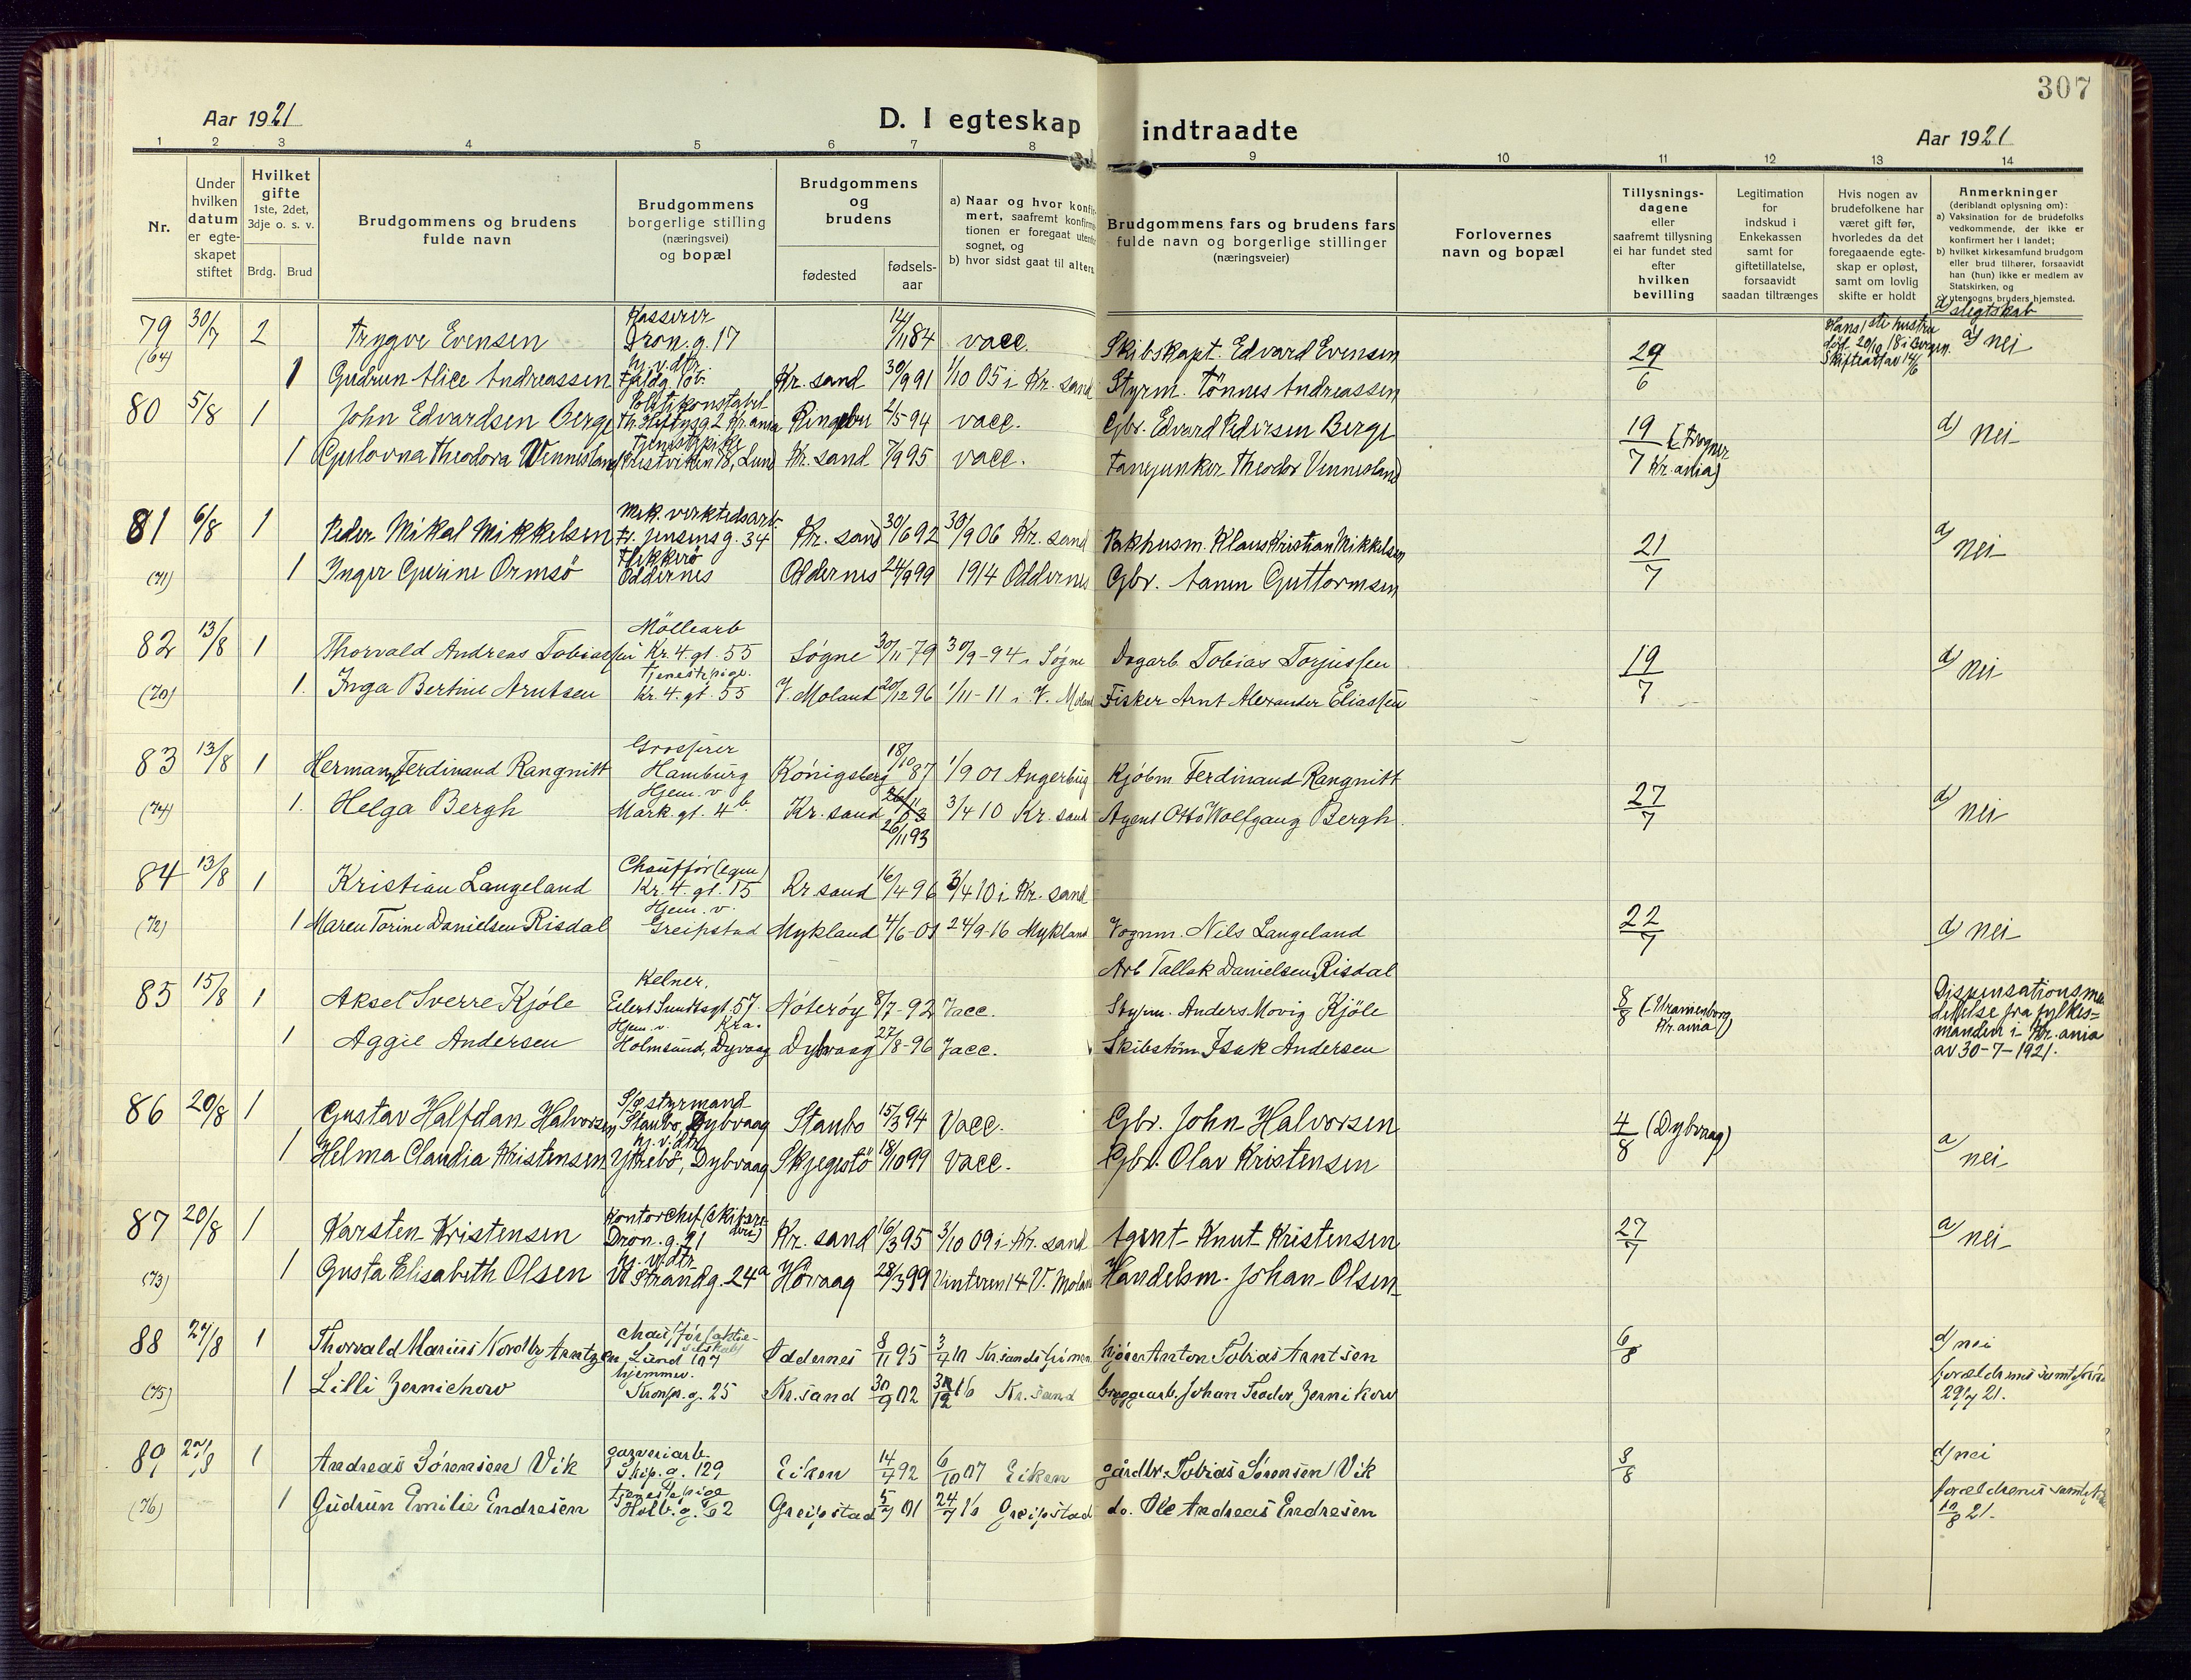 307
Aar 1921
D. I egteskap indtraadte
Aar 1921
1 2 3 4 5 6 7 8 9 10 11 12 13 14
Nr.
Under
hvilken
datum
er egte-
skapet
stiftet
Hvilket
gifte
1ste, 2det,
3dje o. s. v.
Brdg. Brud
Brudgommens og brudens
fulde navn
Brudgommens
borgerlige stilling
(næringsvei)
og bopæl
Brudgommens
og
brudens
fødested
fødsels-
aar
a) Naar og hvor konfir-
mert, saafremt konfirma-
tionen er foregaat utenfor
sognet, og
b) hvor sidst gaat til alters
Brudgommens fars og brudens fars
fulde navn og borgerlige stillinger
(næringsveier)
Forlovernes
navn og bopæl
Tillysnings-
dagene
eller
saafremt tillysning
ei har fundet sted
efter
hvilken
bevilling
Legitimation
for
indskud i
Enkekassen
samt for
giftetillatelse,
forsaavidt
saadan tiltrænges
Hvis nogen av
brudefolkene har
været gift før,
hvorledes da det
foregaaende egte-
skap er opløst,
samt om lovlig
skifte er holdt
Anmerkninger
(deriblandt oplysning om):
a) Vaksination for de brudefolks
vedkommende, der ikke er
konfirmert her i landet;
b) hvilket kirkesamfund brudgom
eller brud tilhører, forsaavidt
han (hun) ikke er medlem av
Statskirken, og
c) utensogns bruders hjemsted.
d) slegtskab
79 30/7 2 Trygve Evensen Kasserer Dron.g. 17 14/11 84 vacc. Skibskapt. Edvard Evensen 29/6 Hans 1ste hustru død 20/10 18 i Bergen. Skifteattest 14/6 d) nei
(64) 1 Gudrun Alice Andreassen hj.v.dtr. Kr. sand 30/9 91 1/10 05 i Kr. sand Styrm. Tønnes Andreassen
80 5/8 1 John Edvardsen Berge Politikonstabel Th. Heftysg. 2 Kr.ania Ringebu 2/5 94 vacc. Gbr. Edvard Pedersen Berge 19/7 (Frogner Kr.ania) d) nei
1 Gulovna Theodora Vennesland Tjenestepike Kristviken 18, Lund Kr. sand 7/9 95 vacc. Fanejunker Theodor Vennesland
81 6/8 1 Peder Mikal Mikkelsen Mek. verkstedsarb. Fr. Jensensg. 34 Kr. sand 30/6 92 30/9 06 Kr. sand Pakhusm. Klaus Kristian Mikkelsen 21/7 d) nei
(71) 1 Inger Gurine Ormsö Flekkerö Oddernes Oddernes 24/9 99 1914 Oddernes Gbr. Aanen Guttormsen
82 13/8 1 Thorvald Andreas Tobiassen Möllearb Kr. 4. gt. 55 Søgne 30/11-79 30/9-94 i Søgne Dagarb. Tobias Torjussen 19/7 d) nei
(70) 1. Inga Bertine Arntsen Tjenestepige. Kr. 4. gt. 55 V. Moland 20/12 96 1/11-11 i V. Moland Fisker Arnt Alexander Eliassen
83 13/8 1 Hermann Ferdinand Rangnitt Grosserer Hamburg Königsberg 18/10 87 1/9 01 Angerburg Kjöbm Ferdinand Rangnitt 27/7 d) nei
(74) 1. Helga Bergh Hjem. v Mark. gt. 4b. Kr. sand 26/11 93 3/4 10 Kr. sand Agent Otto Wolfgang Bergh
84 13/8 1 Kristian Langeland Chauffør (egen) Kr. 4. gt. 15 Kr sand 16/4 96 3/4 10 i Kr. sand Vognm. Nils Langeland 22/7 d) nei
(72) 1 Maren Torine Danielsen Risdal Hjem. v. Greipstad Mykland 4/6-01 24/9-16 Mykland Arb Tallak Danielsen Risdal
85 15/8 1 Aksel Sverre Kjøle Kelner, Eilert Sundtsgt. 57. Kra. Nøterøy 8/7-92 Vacc. Styrm. Anders Movig Kjöle 8/8 (Uranienborg Kr.ania) Dispensationsmeddelelse fra fylkes=manden i Kr.ania av 30-7-1921.
1 Aggie Andersen Hjem. v. Holmsund, Dyvaag Dybvaag 27/8-96 Vacc. Skibstøm. Isak Andersen
86 20/8 1 Gustav Halfdan Halvorsen styrmand Staubo, Dybvaag Staubo 15/3 94 Vacc. Gbr. John Halvorsen 4/8 (Dybvaag) a nei
1 Helma Claudia Kristensen hj. v. dtr Dybvaag Skjegestö 18/10 99 Vacc. Gbr. Olav Kristensen
87 20/8 1 Karsten Kristensen Kontorchef (skibsrederi) Dron.g. 21 Kr. sand 16/3 95 3/10 09 i Kr. sand Agent Knut Kristensen 27/7 a) nei
(73) 1 Gusta Elisabeth Olsen hj. v. dtr V. Strandg. 24a Hövaag 28/3 99 Vinteren 14 V. Moland Handelsm. Johan Olsen
88 27/8 1 Thorvald Marius Nordby Arntzen chauffør (aktieselskab) Lund 107 Oddernes 8/11 95 3/4 10 Kr.sand kjører Anton Tobias Arntsen 6/8 d) nei
(75) 1 Lilli Zernichow hjemmev. Kronpr.g. 25 Kr. sand 30/9 02 16 Kr. sand bryggearb. Johan Teodor Zernikow forældrenes samtykke 29/7 21.
89 27/8 1 Andreas Sørensen Vik gasverkarb. Skip.g. 129 Eiken 14/7 92 6/10 07 Eiken gårdbr. Tobias Sørensen Vik 8/8 d) nei
(76) 1 Gudrun Emilie Endresen tjenestepige Holb.g. 62 Greipstad 5/7 01 24/7 16 Greipstad do. Ole Andreas Endresen forældrenes samtykke 10/8 21.